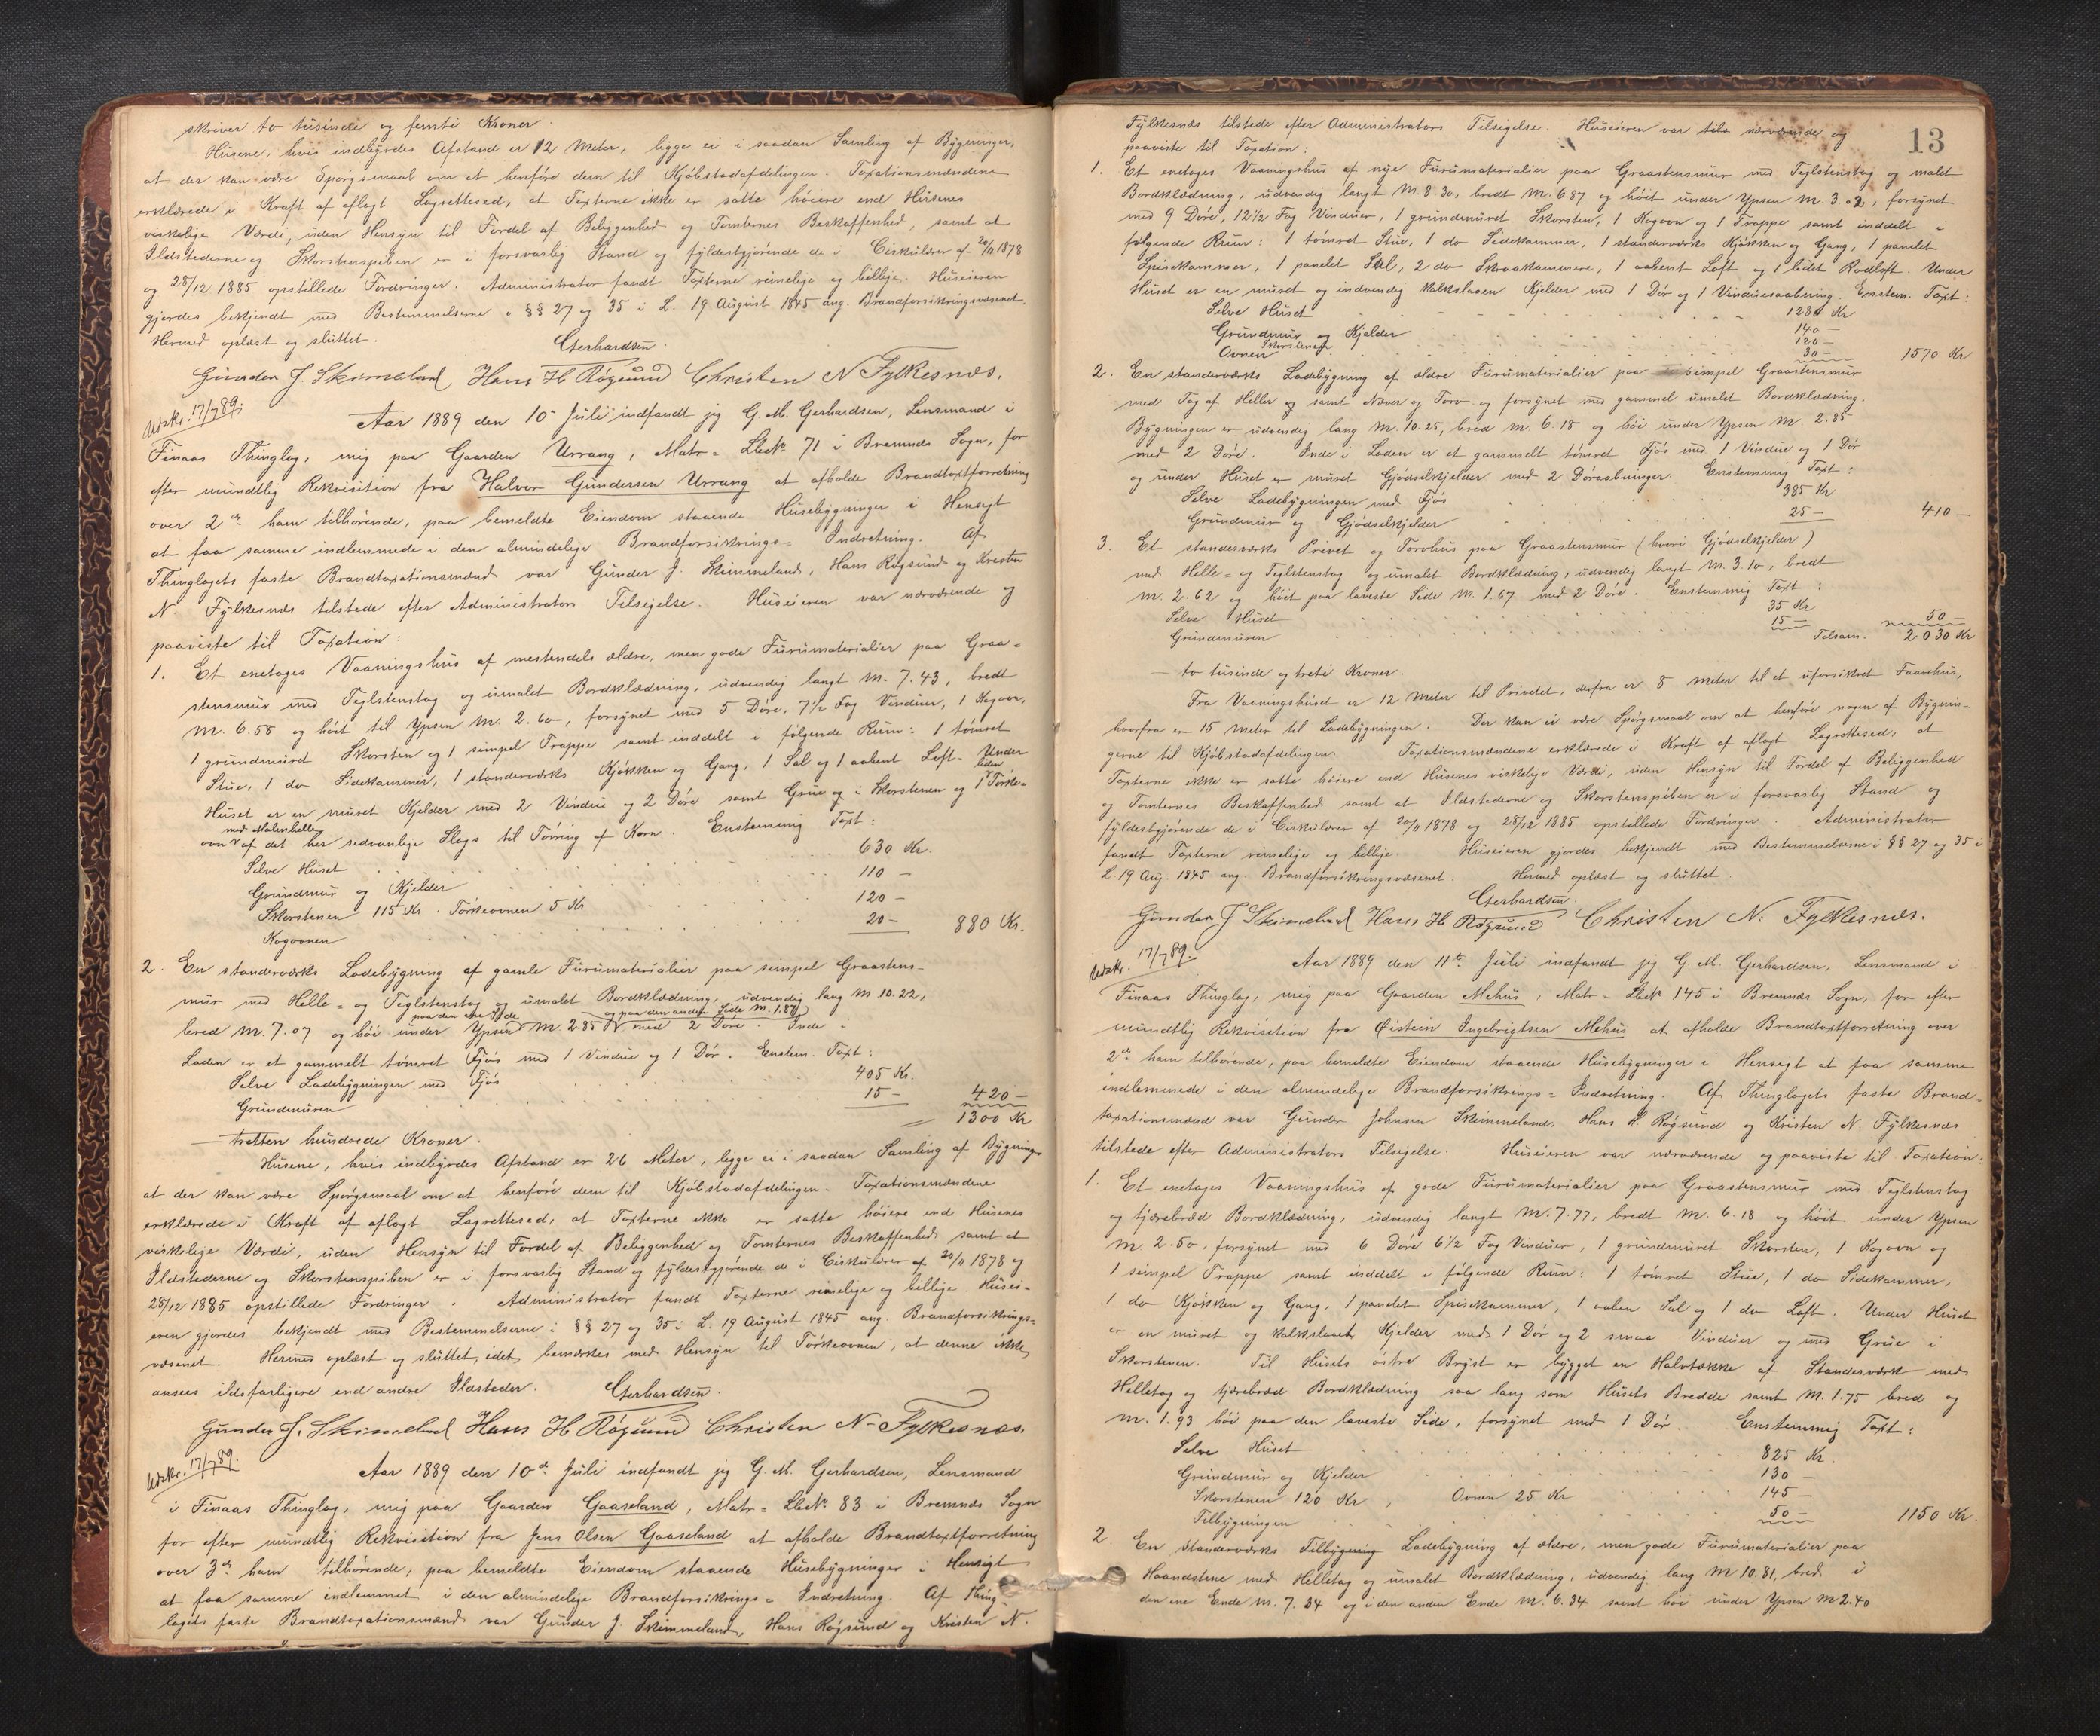 skriver to tusinde og femti Kroner.
Husene, hvis indbyrdes Afstand er 12 Meter, ligge ei i saadan Samling af Bygninger,
at der kan være Spørgsmaal om at henføre dem til Kjøbstadafdelingen. Taxationsmændene
erklærede i Kraft af aflagt Lagrettesed, at Taxterne ikke er satte høiere end Husenes
virkelige Værdi, uden Hensyn til Fordel af Beliggenhed og Tomternes Beskaffenhed, samt at
Ildstederne og Skorstenspiben er i forsvarlig Stand og fyldestgjørende de i Cirkulærer af 20/11 1878
og 28/12 1885 opstillede Fordringer. Administrator fandt Taxterne rimelige og billige. Huseieren
gjordes bekjendt med Bestemmelserne i §§ 27 og 35 i L. 19 August 1845 ang. Brandforsikringsvæsenet.
Hermed oplæst og sluttet.
Gerhardsen.
Gunder J. Skimeland Hans H Røgsund Christen N Fylkesnæs.
Udskr. 17/7 89.
Aar 1889 den 10de Juli indfandt jeg G. M. Gerhardsen, Lensmand i
Finaas Thinglag, mig paa Gaarden Urrang, Matr.= Løbe№ 71 i Bremnæs Sogn, for
efter mundtlig Rekvisition fra Halvor Gundersen Urrang at afholde Brandtaxtforretning
over 2de ham tilhørende, paa bemeldte Eiendom staaende Husebygninger i Hensigt
at faa samme indlemmede i den almindelige Brandforsikrings= Indretning. Af
Thinglagets faste Brandtaxationsmænd var Gunder J. Skimmeland, Hans Røgsund og Kristen
N. Fylkesnæs tilstede efter Administrators Tilsigelse. Huseieren var nærværende og
paaviste til Taxation:
1. Et enetages Vaaningshus af mestendels ældre, men gode Furumaterialier paa Graa=
stensmur med Teglstenstag og umalet Bordklædning, udvendig langt M. 7.43, bredt
M. 6.58 og høit til Ypsen M. 2.60, forsynet med 5 Døre, 7½ Fag Vinduer, 1 Kogovn,
1 grundmuret Skorsten og 1 simpel Trappe samt inddelt i følgende Rum: 1 tømret
Stue, 1 do Sidekammer, 1 standerværks Kjøkken og Gang, 1 Sal og 1 aabent Loft. Under
Huset er en muret Kjelder med 2 Vindue og 2 Døre samt Grue og i Skorstenen og 1 liden Tørke=
ovn med Malmhelle af det her sedvanlige Slags til Tørring af Korn. Enstemmig Taxt:
Selve Huset 630 Kr.
Grundmur og Kjelder 110 —
Skorstenen 115 Kr. Tørkeovnen 5 Kr 120 —
Kogovnen 20 — 880 Kr.
2. En standerværks Ladebygning af gamle Furumaterialier paa simpel Graastens=
mur med Helle= og Teglstenstag og umalet Bordklædning, udvendig lang M 10.22,
bred M. 7.07 og høi under Ypsen paa den ene Side M 2.85 og paa den anden Side M. 1.87 med 2 Døre. Inde i
Laden er et gammelt tømret Fjøs med 1 Vindue og 1 Dør. Enstem. Taxt:
Selve Ladebygningen med Fjøs 405 Kr.
Grundmuren 15 — 420 —
1300 Kr
— tretten hundrede Kroner.
Husene, hvis indbyrdes Afstand er 26 Meter, ligge ei i saadan Samling af Bygninge
at der kan være Spørgsmaal om at henføre dem til Kjøbstadafdelingen. Taxationsmændene
erklærede i Kraft af aflagt Lagrettesed, at Taxterne ikke er satte høiere end Husenes
virkelige Værdi, uden Hensyn til Fordel af Beliggenhed og Tomternes Beskaffenhed samt at
Ildstederne og Skorstenspiben er i forsvarlig Stand og fyldestgjørende de i Cirkulærer af 20/11 1878 og
28/12 1885 opstillede Fordringer. Administrator fandt Taxterne rimelige og billige. Husei=
eren gjordes bekjendt med Bestemmelserne i §§ 27 og 35 i L. 19 August 1845 ang. Brandforsikrings=
væsenet. Hermed oplæst og sluttet, idet bemærkes med Hensyn til Tørkeovnen, at denne ikke
ansees ildsfarligere end andre Ildsteder.
Gerhardsen.
Gunder J. Skimeland Hans H Røgsund Christen N. Fylkesnæs.
Udskr. 17/7 89.
Aar 1889 den 10de Juli indfandt jeg G. M. Gerhardsen, Lensmand
i Finaas Thinglag, mig paa Gaarden Gaaseland, Matr.= Løbe№ 83 i Bremnæs Sogn
for efter mundtlig Rekvisition fra Jens Olsen Gaaseland at afholde Brandtaxtforretning
over 3de ham tilhørende, paa bemeldte Eiendom staaende Husebygninger i Hensigt
at faa samme indlemmet i den almindelige Brandforsikrings= Indretning. Af Thing
lagets faste Brandtaxationsmænd var Gunder J. Skimmeland, Hans Røgsund og Kristen N.
13
Fylkesnæs tilstede efter Administrators Tilsigelse. Huseieren var tils nærværende og
paaviste til Taxation:
1. Et enetages Vaaningshus af nye Furumaterialier paa Graastensmur med Teglstenstag og malet
Bordklædning, udvendig langt M. 8.30, bredt M. 6.87 og høit under Ypsen M. 3.02, forsynet
med 9 Døre, 12½ Fag Vinduer, 1 grundmuret Skorsten, 1 Kogovn og 1 Trappe samt inddelt i
følgende Rum: 1 tømret Stue, 1 do Sidekammer, 1 standerværks Kjøkken og Gang, 1 panelet
Spisekammer, 1 panelet Sal, 2 do Skraakammere, 1 aabent Loft og 1 lidet Rodloft. Under
Huset er en muret og indvendig kalkslaaen Kjelder med 1 Dør og 1 Vinduesaabning. Enstem. Taxt:
Selve Huset 1280 Kr
Grundmur og Kjelder 140 —
Skorstenen 120 —
Ovnen 30 — 1570 Kr
2. En standerværks Ladebygning af ældre Furumaterialier paa simpel Graastensmur
med Tag af Heller og samt Næver og Torv og forsynet med gammel umalet Bordklædning.
Bygningen er udvendig lang M. 10.25, bred M. 6.18 og høi under Ypsen M. 2.85
med 2 Døre. Inde i Laden er et gammelt tømret Fjøs med 1 Vindue og 1 Dør
og under Huset er muret Gjødselkjelder med 2 Døraabninger. Enstemmig Taxt:
Selve Ladebygningen med Fjøs 385 Kr
Grundmur og Gjødselkjelder 25 — 410 —
3. Et standerværks Privet og Torvhus paa Graastensmur (hvori Gjødselkjelder)
med Helle= og Teglstenstag og umalet Bordklædning, udvendig langt M. 3.10, bredt
M. 2.62 og høit paa laveste Side M. 1.67 med 2 Døre. Enstemmig Taxt:
Selve Huset 35 Kr
Grundmuren 15 — 50 —
Tilsam. 2030 Kr
— to tusinde og treti Kroner.
Fra Vaaningshuset er 12 Meter til Privetet, derfra er 8 Meter til et uforsikret Faarehus,
hvorfra er 15 Meter til Ladebygningen. Der kan ei være Spørgsmaal om at henføre nogen af Bygnin=
gerne til Kjøbstadafdelingen. Taxationsmændene erklærede i Kraft af aflagt Lagrettesed, at
Taxterne ikke er satte høiere end Husenes virkelige Værdi, uden Hensyn til Fordel af Beliggenhed
og Tomternes Beskaffenhed samt at Ildstederne og Skorstenspiben er i forsvarlig Stand og
fyldestgjørende de i Cirkulærer af 20/11 1878 og 28/12 1885 opstillede Fordringer. Administrator
fandt Taxterne rimelige og billige. Huseieren gjordes bekjendt med Bestemmelserne i §§ 27 og 35 i
L. 19 Aug. 1845 ang. Brandforsikringsvæsenet. Hermed oplæst og sluttet.
Gerhardsen.
Gunder J Skimeland Hans H Røgsund Christen N. Fylkesnæs.
Udskr. 17/7 89.
Aar 1889 den 11te Juli indfandt jeg G. M. Gerhardsen, Lensmand i
Finaas Thinglag, mig paa Gaarden Mehus, Matr.= Løbe№ 145 i Bremnæs Sogn, for efter
mundtlig Rekvisition fra Øistein Ingebrigtsen Mehus at afholde Brandtaxtforretning over
2de ham tilhørende, paa bemeldte Eiendom staaende Husebygninger i Hensigt at faa samme
indlemmede i den almindelige Brandforsikrings= Indretning. Af Thinglagets faste Brand=
taxationsmænd var Gunder Johnsen Skimmeland, Hans H. Røgsund og Kristen N. Fylkesnæs
tilstede efter Administrators Tilsigelse. Huseieren var nærværende og paaviste til Taxation:
1. Et enetages Vaaningshus af gode Furumaterialier paa Graastensmur med Teglstenstag
og tjærebræd Bordklædning, udvendig langt M. 7.77, bredt M. 6.18 og høit under Ypsen
M. 2.50, forsynet med 6 Døre 6½ Fag Vinduer, 1 grundmuret Skorsten, 1 Kogovn og
1 simpel Trappe samt inddelt i følgende Rum: 1 tømret Stue, 1 do Sidekammer,
1 do Kjøkken og Gang, 1 panelet Spisekammer, 1 aaben Sal og 1 do Loft. Under Huset
er en muret og kalkslaaet Kjelder med 1 Dør og 2 smaa Vinduer og med Grue i
Skorstenen. Til Husets østre Bryst er bygget en Halvtække af Standerværk med
Helletag og tjærebræd Bordklædning saa lang som Husets Bredde samt M. 1.75 bred og
M. 1.93 høi paa den laveste Side, forsynet med 1 Dør. Enstemmig Taxt:
Selve Huset 825 Kr.
Grundmur og Kjelder 130 —
Skorstenen 120 Kr, Ovnen 25 Kr 145 —
Tilbygningen 50 — 1150 Kr.
2. En standerværks Tilbygning Ladebygning af ældre, men gode Furumaterialier paa
Haandstene med Helletag og umalet Bordklædning, udvendig lang M 10.81, bred i
den ene Ende M. 7.34 og i den anden Ende M. 6.34 samt høi under Ypsen M 2.40